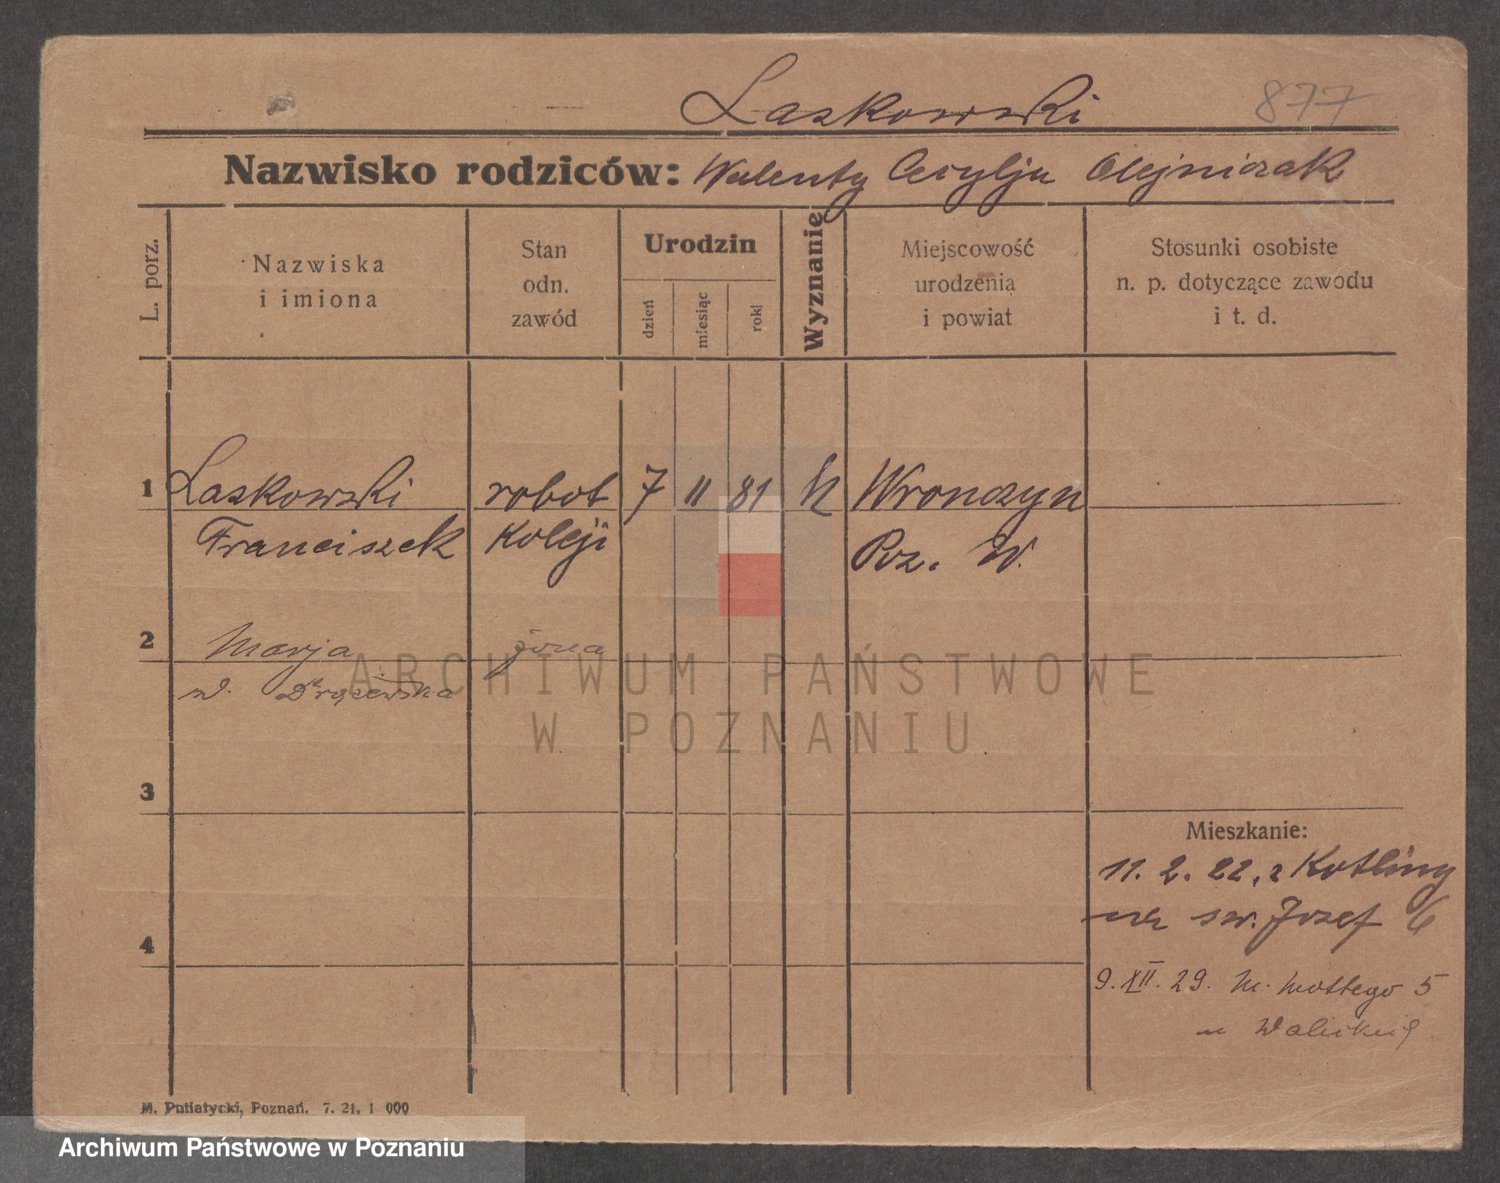 Laskowski 877
Nazwisko rodziców: Walenty Cecylja Olejniczak
L. porz.
Nazwiska
i imiona
Stan
odn.
zawód
Urodzin
dzień
miesiąc
rok
Wyznanie
Miejscowość
urodzenia
i powiat
Stosunki osobiste
n. p. dotyczące zawodu
i t. d.
1 Laskowski robot 7 11 81 k Wronczyn
Franciszek Koleji Poz. W.
2 Marja żona
w.
ARCHIWUM PAŃSTWOWE
W POZNANIU
3
Mieszkanie:
11. 2. 22, z Kotliny
św. Józef 6
4
9. XII. 29. M. Mottego 5
M. Putiatycki, Poznań. 7. 21. 1 000
Archiwum Państwowe w Poznaniu